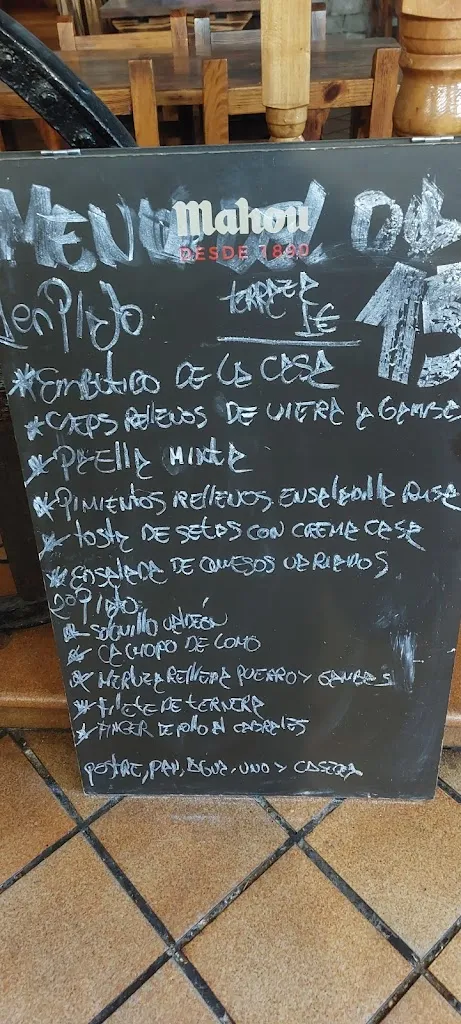 Mahou
MENU DEL DIA
DESDE 1890
1er Plato
terraza 1€
15
* EMBUTIDO DE LA CASA
* CREPS RELLENOS DE VIEIRA Y GAMBAS
* PAELLA MIXTA
* PIMIENTOS RELLENOS, ENSALADILLA RUSA
* TOSTA DE SETAS CON CREMA CASA
* ENSALADA DE QUESOS VARIADOS
2o Plato
* CACHOPO DE LOMO
* MERLUZA RELLENA PUERRO Y GAMBAS
* FILETE DE TERNERA
* FINGER DE POLLO AL CABRALES
POSTRE, PAN, AGUA, VINO Y CASERA